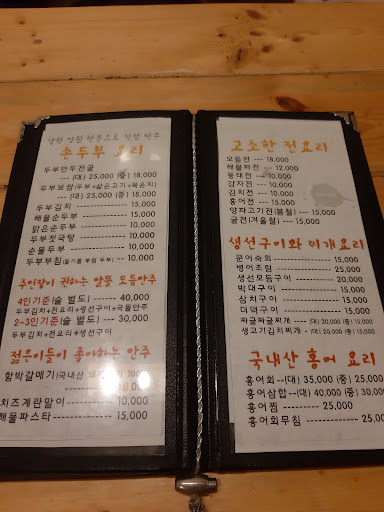 손두부 요리
두부만두전골
--- (대) 25,000 (중) 18,000
두부보쌈(두부+삶은고기+볶은지)
--- (대) 25,000 (중) 18,000
두부김치 --- 15,000
해물순두부 --- 10,000
맑은순두부 --- 10,000
두부젓국탕 --- 10,000
순물두부 --- 10,000
두부부침(들기름 부침 두부) --- 10,000
주인장이 권하는 알뜰 모듬안주
4인기준(술 별도) ---- 40,000
두부김치+전요리+생선구이+국물안주
2~3인기준(술 별도) --- 30,000
두부김치+전요리+생선구이
젊은이들이 좋아하는 안주
함박갈매기(국내산
치즈계란말이 --- 10,000
해물파스타 --- 15,000
고소한 전요리
모듬전 --- 18,000
해물파전 --- 12,000
동태전 --- 10,000
감자전 --- 10,000
김치전 --- 10,000
홍어전 --- 15,000
양파고기전(봄철) --- 15,000
굴전(겨울철) --- 15,000
생선구이와 찌개요리
문어숙회 --- 15,000
뱅어조림 --- 25,000
생선모듬구이 --- 20,000
박대구이 --- 15,000
삼치구이 --- 15,000
더덕구이 --- 15,000
짜글짜글찌개 --- (대) 20,000 (중) 15,000
생고기김치찌개 - (대) 20,000 (중) 15,000
국내산 홍어 요리
홍어회---(대) 35,000 (중) 25,000
홍어삼합---(대) 40,000 (중) 30,000
홍어찜 --- 25,000
홍어회무침 --- 25,000